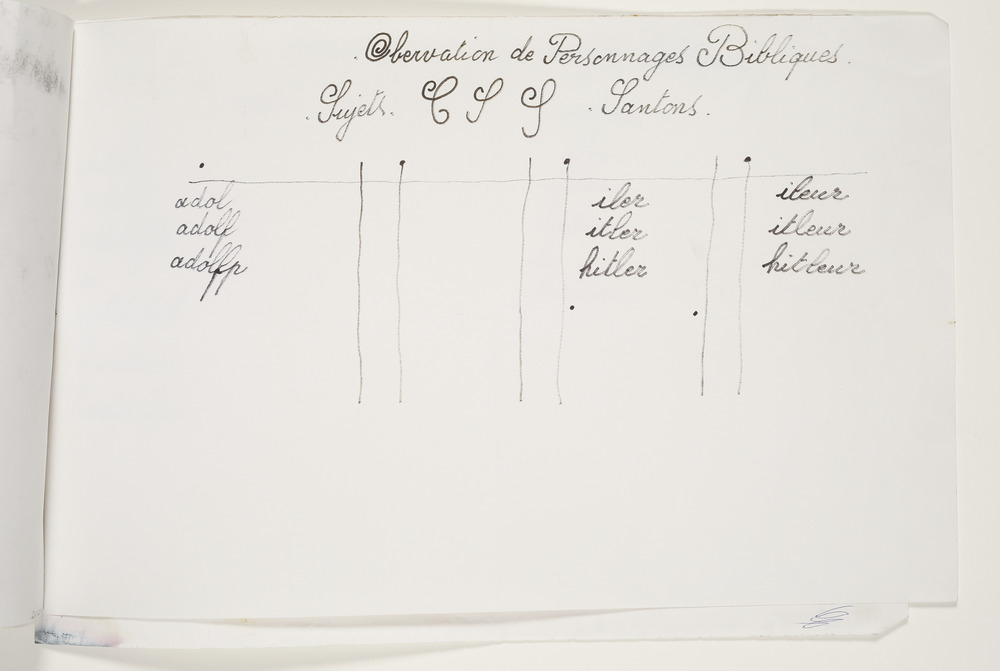 . Obervation de Personnages Bibliques .
. Sujets. C S S . Santons .
adol iler ileur
adolf itler itleur
adolfp hitler hitleur